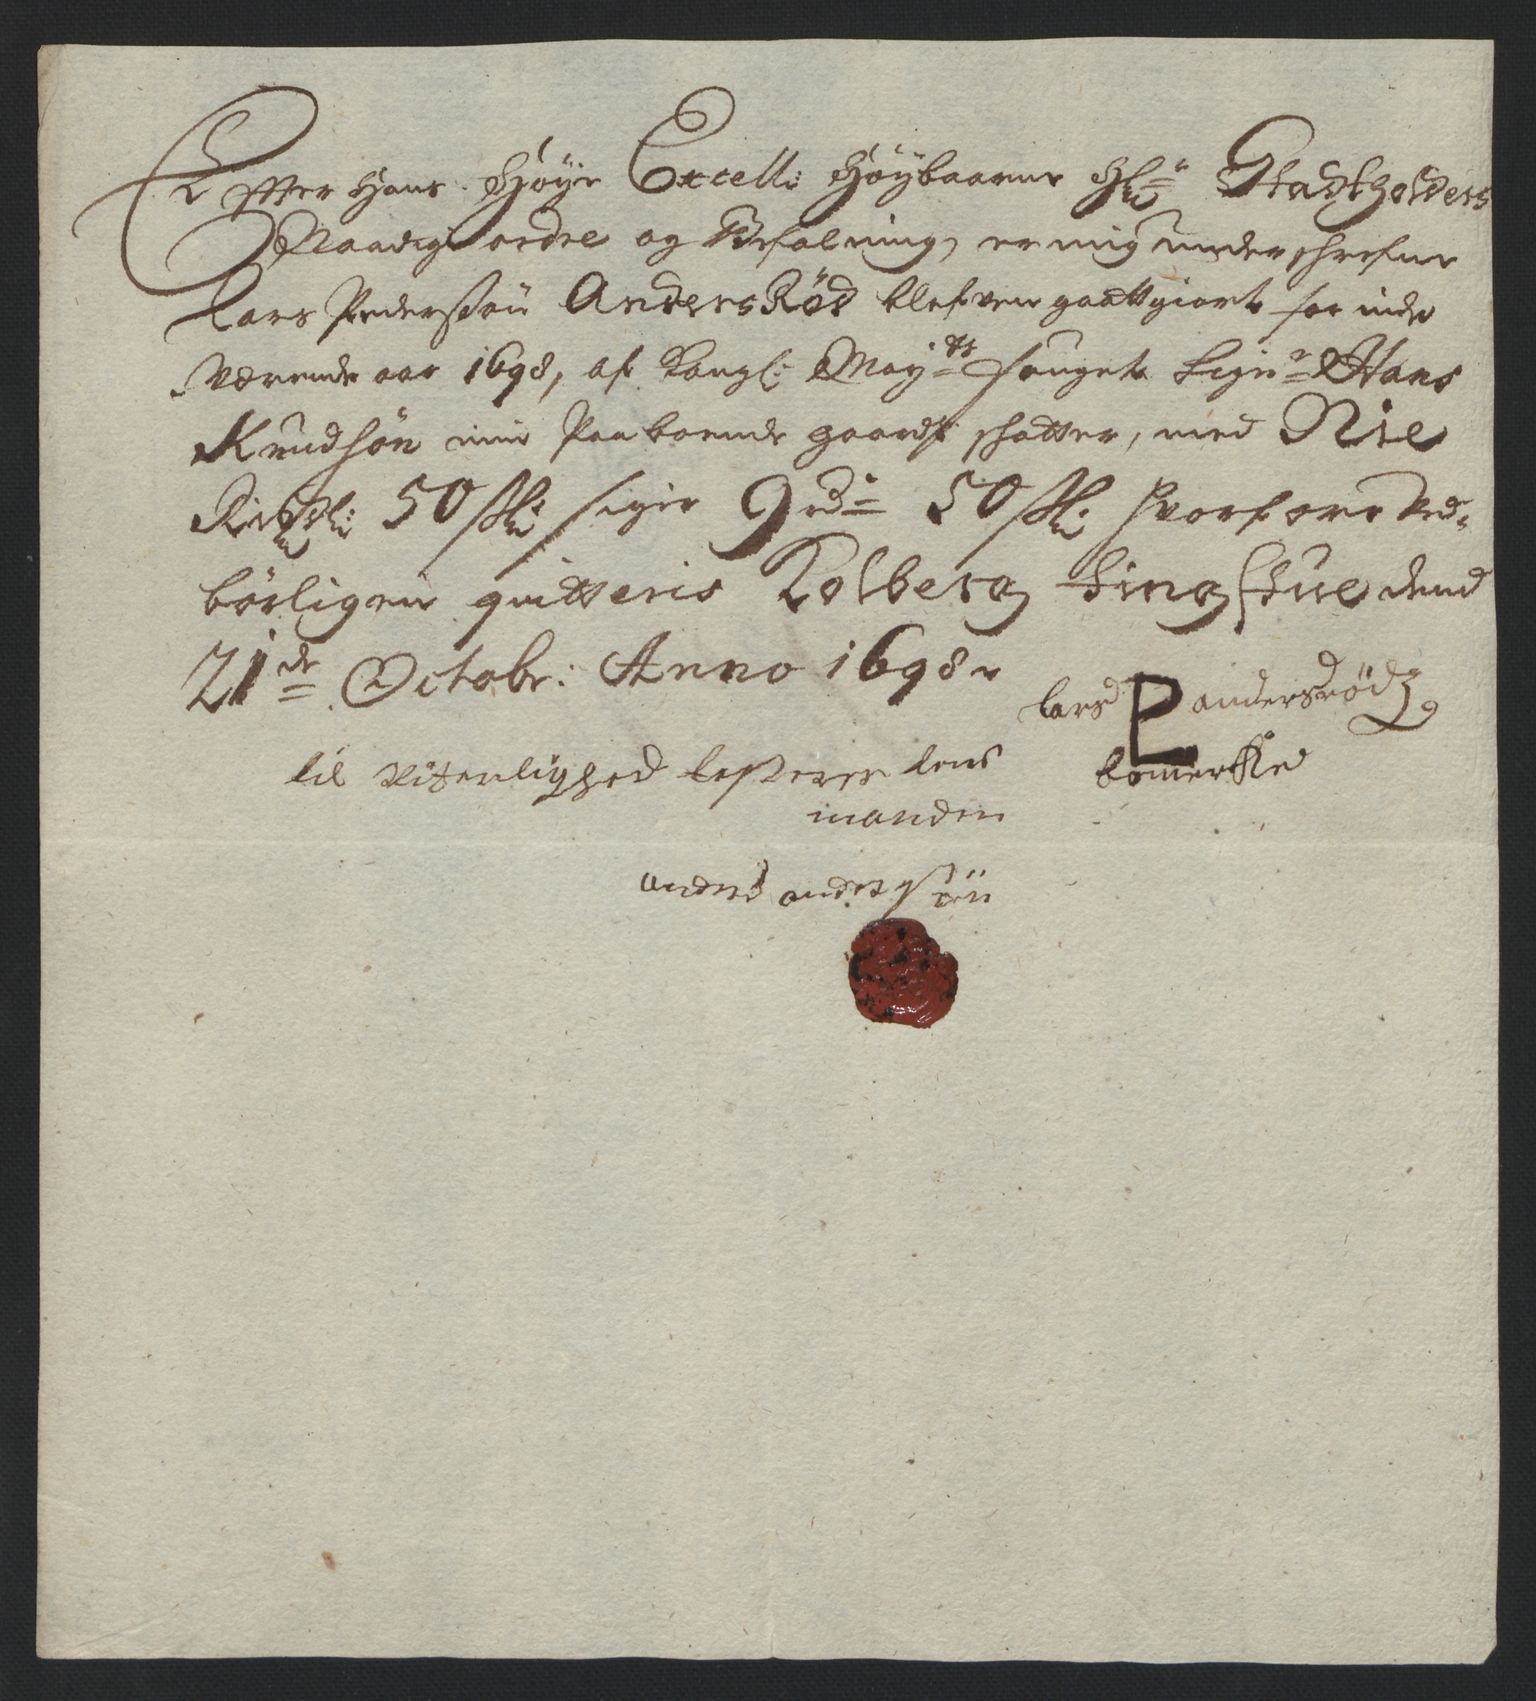 Effter Hans Høye Excell: Høybaarne Hr: Stadtholders
Naadige ordre og Befalning, er mig underschrefne
Lars Pedersøn AndersRød blefven gaattgiort for inde
Værende aar 1698, af Kongl: Mayts fougt Signr Hans
Knudsøn min Paaboende gaards schatter, med Nie
Rixdl: 50 sk: siger 9 rdr 50 sk: hvorfore Ved-
børligen qvitteris Kolberg tingstue dend
21de Octobr: Anno 1698
lars P andersrødz
bomerkke
til Vitterlighed lens
manden
anders anderssøn